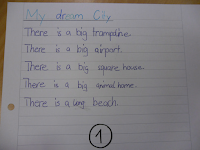 My dream City
There is a big trampoline.
There is a big airport.
There is a big square house.
There is a big animal home.
There is a long beach.
1